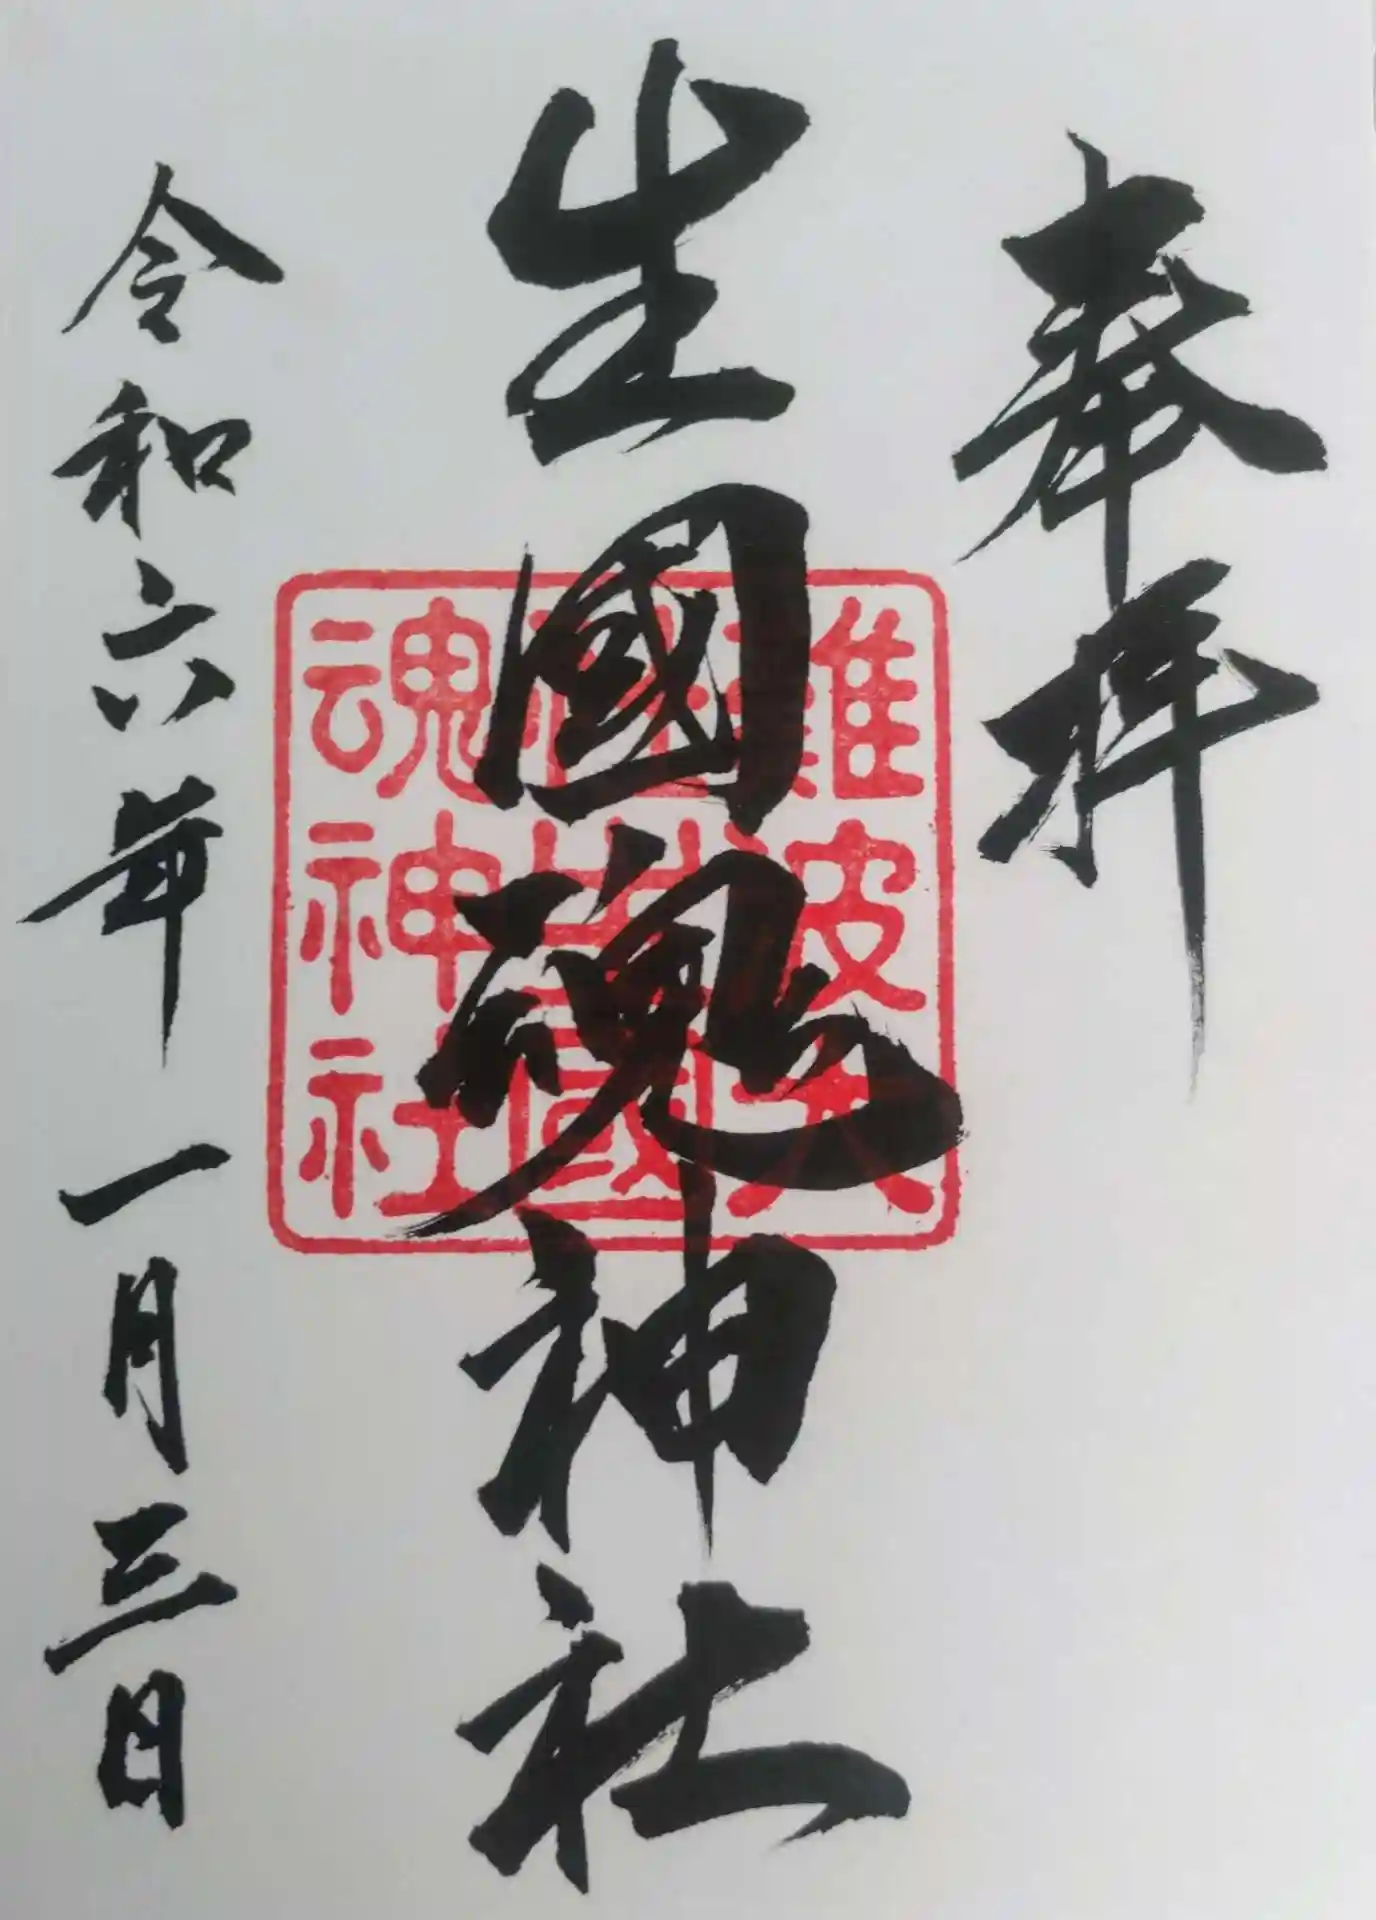 奉拝
生國魂神社
令和六年一月三日
難波大
生國
魂神社